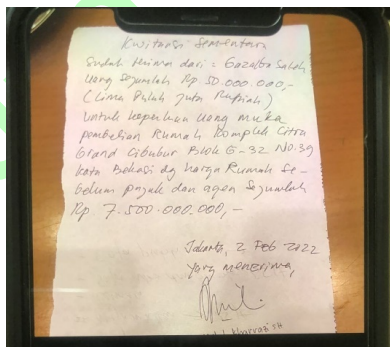 Kwitansi Sementara
Sudah terima dari : Gazalba Saleh
Uang Sejumlah Rp 50.000.000,-
(Lima Puluh Juta Rupiah)
Untuk keperluan Uang muka
pembelian Rumah Komplek Citra
Grand Cibubur Blok G-32 No.39
Kota Bekasi dg harga Rumah Se-
belum pajak dan agen Sejumlah
Rp 7.500.000.000,-
Jakarta, 2 Feb 2022
Yang menerima,